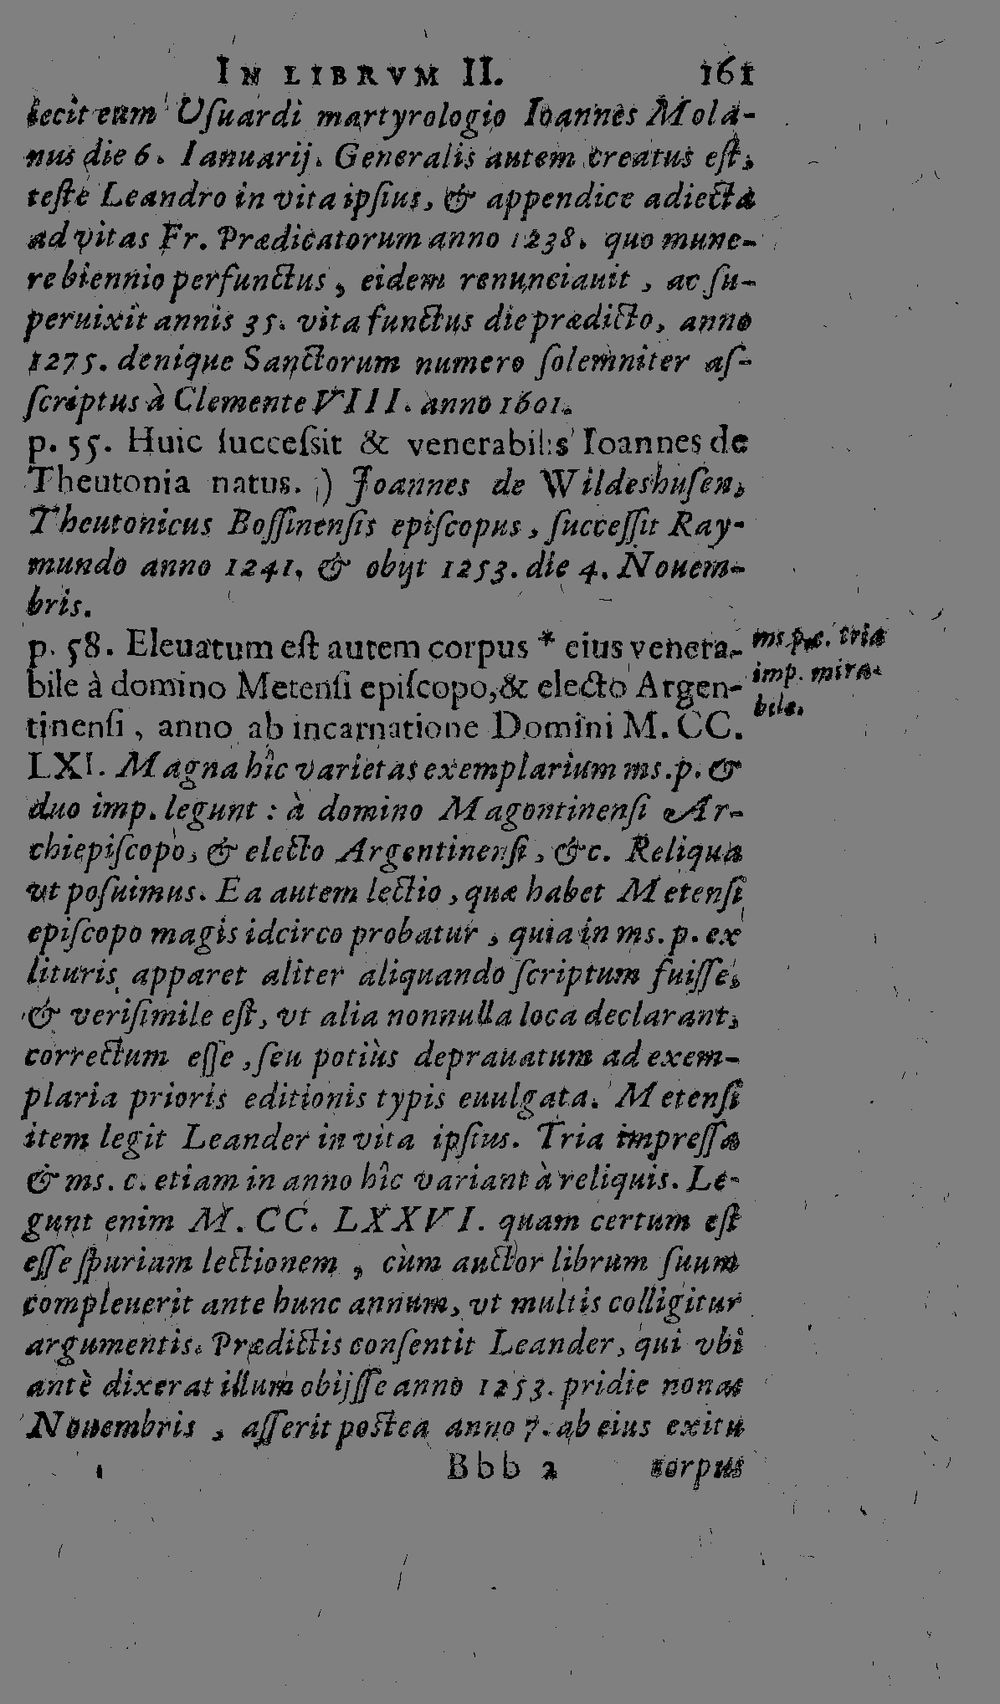 IN LIBRVM II. 161
iecit eum Vſuardi martyrologio Ioannes Mola-
nus die 6. Ianuarij. Generalis autem creatus eſt,
teſte Leandro in vita ipſius, & appendice adiecta
ad vitas Fr. Prædicatorum anno 1238. quo mune-
re biennio perfunctus, eidem renunciauit, ac ſu-
peruixit annis 35. vita functus die prædicto, anno
1275. denique Sanctorum numero ſolemniter aſ-
ſcriptus à Clemente VIII. anno 1601.
p. 55. Huic ſucceſsit & venerabilis Ioannes de
Theutonia natus. ) Joannes de Wildeshuſen,
Theutonicus Boſſinenſis epiſcopus, ſucceſſit Ray-
mundo anno 1241. & obijt 1253. die 4. Nouem-
bris.
p. 58. Eleuatum eſt autem corpus * eius venera-
bile à domino Metenſi epiſcopo, & electo Argen-
tinenſi, anno ab incarnatione Domini M. CC.
LXI. Magna hîc varietas exemplarium ms. p. &
duo imp. legunt : à domino Magontinenſi Ar-
chiepiſcopo, & electo Argentinenſi, &c. Reliqua
vt poſuimus. Ea autem lectio, quæ habet Metenſi
epiſcopo magis idcirco probatur, quia in ms. p. ex
lituris apparet aliter aliquando ſcriptum fuiſſe,
& veriſimile eſt, vt alia nonnulla loca declarant,
correctum eſſe, ſeu potiùs deprauatum ad exem-
plaria prioris editionis typis euulgata. Metenſi
item legit Leander in vita ipſius. Tria impreſſa
& ms. c. etiam in anno hîc variant à reliquis. Le-
gunt enim M. CC. LXXVI. quam certum eſt
eſſe ſpuriam lectionem, cùm auctor librum ſuum
compleuerit ante hunc annum, vt multis colligitur
argumentis. Prædictis conſentit Leander, qui vbi
antè dixerat illum obijſſe anno 1253. pridie nonas
Nouembris, aſſerit postea anno 7. ab eius exitu
Bbb 2 corpus
ms. p. c. tria
imp. mira-
bile.